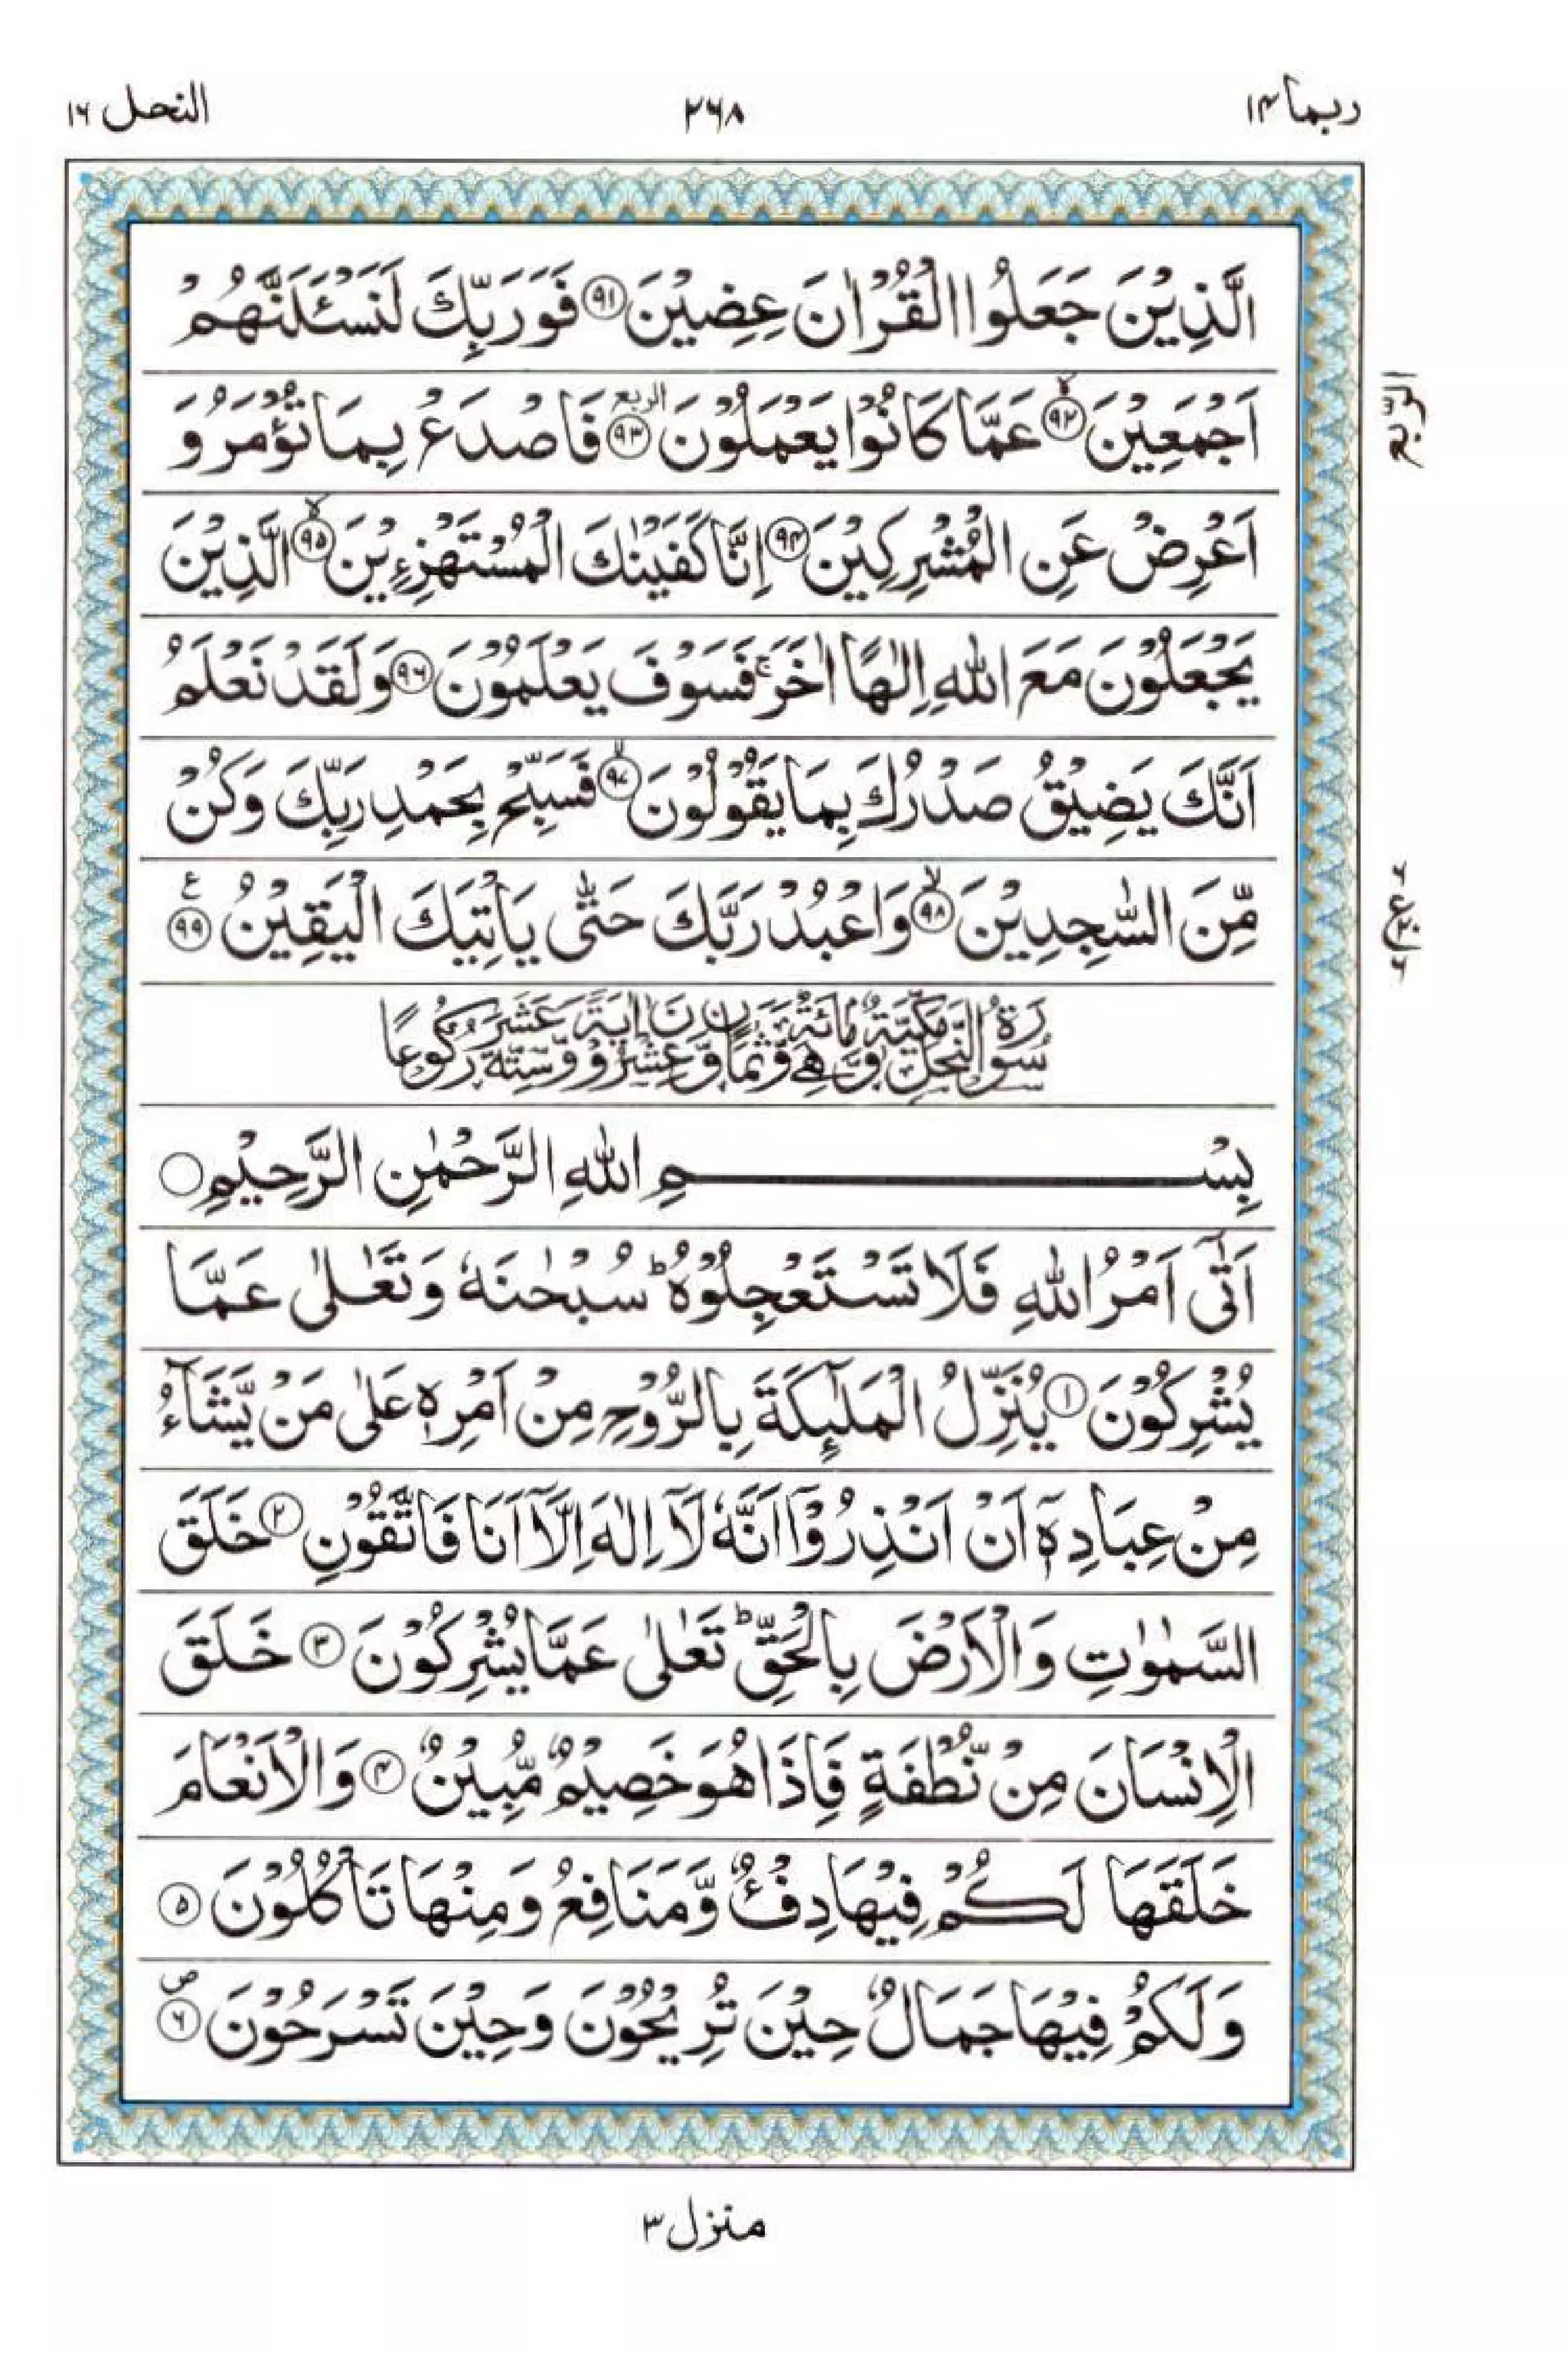 ربما ١٤
٢٦٨
النحل ١٦
الَّذِيْنَ جَعَلُوا الْقُرْاٰنَ عِضِيْنَ ﴿٩١﴾ فَوَرَبِّكَ لَنَسْـَٔلَنَّهُمْ
اَجْمَعِيْنَ ﴿٩٢﴾ۙ عَمَّا كَانُوْا يَعْمَلُوْنَ ﴿٩٣﴾ الربع فَاصْدَعْ بِمَا تُؤْمَرُ وَ
الربع
اَعْرِضْ عَنِ الْمُشْرِكِيْنَ ﴿٩٤﴾ اِنَّا كَفَيْنٰكَ الْمُسْتَهْزِءِيْنَ ﴿٩٥﴾ۙ الَّذِيْنَ
يَجْعَلُوْنَ مَعَ اللّٰهِ اِلٰهًا اٰخَرَ ۚ فَسَوْفَ يَعْلَمُوْنَ ﴿٩٦﴾ وَلَقَدْ نَعْلَمُ
اَنَّكَ يَضِيْقُ صَدْرُكَ بِمَا يَقُوْلُوْنَ ﴿٩٧﴾ۙ فَسَبِّحْ بِحَمْدِ رَبِّكَ وَكُنْ
مِّنَ السّٰجِدِيْنَ ﴿٩٨﴾ۙ وَاعْبُدْ رَبَّكَ حَتّٰى يَاْتِيَكَ الْيَقِيْنُ ﴿٩٩﴾ ع
سُوْرَةُ النَّحْلِ مَكِّيَّةٌ وَّهِيَ مِائَةٌ وَّثَمَانٍ وَّعِشْرُوْنَ اٰيَةً وَّسِتَّةَ عَشَرَ رُكُوْعًا
بِسْمِ اللّٰهِ الرَّحْمٰنِ الرَّحِيْمِ ○
اَتٰٓى اَمْرُ اللّٰهِ فَلَا تَسْتَعْجِلُوْهُ ؕ سُبْحٰنَهٗ وَتَعٰلٰى عَمَّا
يُشْرِكُوْنَ ﴿١﴾ يُنَزِّلُ الْمَلٰٓئِكَةَ بِالرُّوْحِ مِنْ اَمْرِهٖ عَلٰى مَنْ يَّشَآءُ
مِنْ عِبَادِهٖٓ اَنْ اَنْذِرُوْٓا اَنَّهٗ لَآ اِلٰهَ اِلَّآ اَنَا فَاتَّقُوْنِ ﴿٢﴾ خَلَقَ
السَّمٰوٰتِ وَالْاَرْضَ بِالْحَقِّ ؕ تَعٰلٰى عَمَّا يُشْرِكُوْنَ ﴿٣﴾ خَلَقَ
الْاِنْسَانَ مِنْ نُّطْفَةٍ فَاِذَا هُوَ خَصِيْمٌ مُّبِيْنٌ ﴿٤﴾ وَالْاَنْعَامَ
خَلَقَهَا لَكُمْ فِيْهَا دِفْءٌ وَّمَنَافِعُ وَمِنْهَا تَاْكُلُوْنَ ﴿٥﴾
وَلَكُمْ فِيْهَا جَمَالٌ حِيْنَ تُرِيْحُوْنَ وَحِيْنَ تَسْرَحُوْنَ ﴿٦﴾ ص
منزل ٣